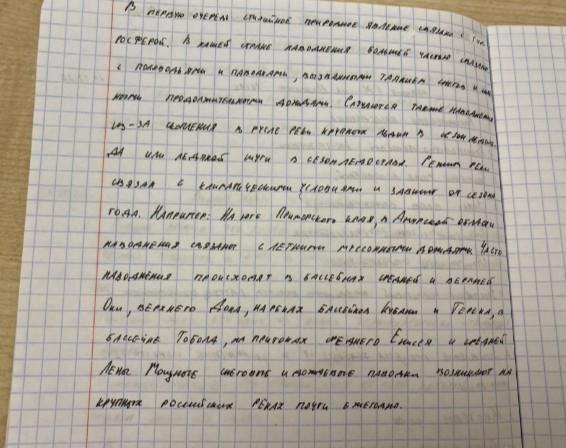 В первую очередь стихийное природное явление связано с гид-
росферой. В нашей стране наводнения большей частью связаны
с половодьями и паводками, вызванными таянием снегов и
ными продолжительными дождями. Случаются также наводнения
из-за скопления в русле реки крупных льдин в сезон ледохо-
да или ледяной шуги в сезон ледостава. Режим реки
связан с климатическими условиями и зависит от сезона
года. Например: На юге Приморского края, в Амурской области
наводнения связаны с летними муссонными дождями. Часто
наводнения происходят в бассейнах средней и верхней
Оки, верхнего Дона, на реках бассейнов Кубани и Терека, в
бассейне Тобола, на притоках среднего Енисея и средней
Лены. Мощные снеговые и дождевые паводки возникают на
крупных российских реках почти ежегодно.